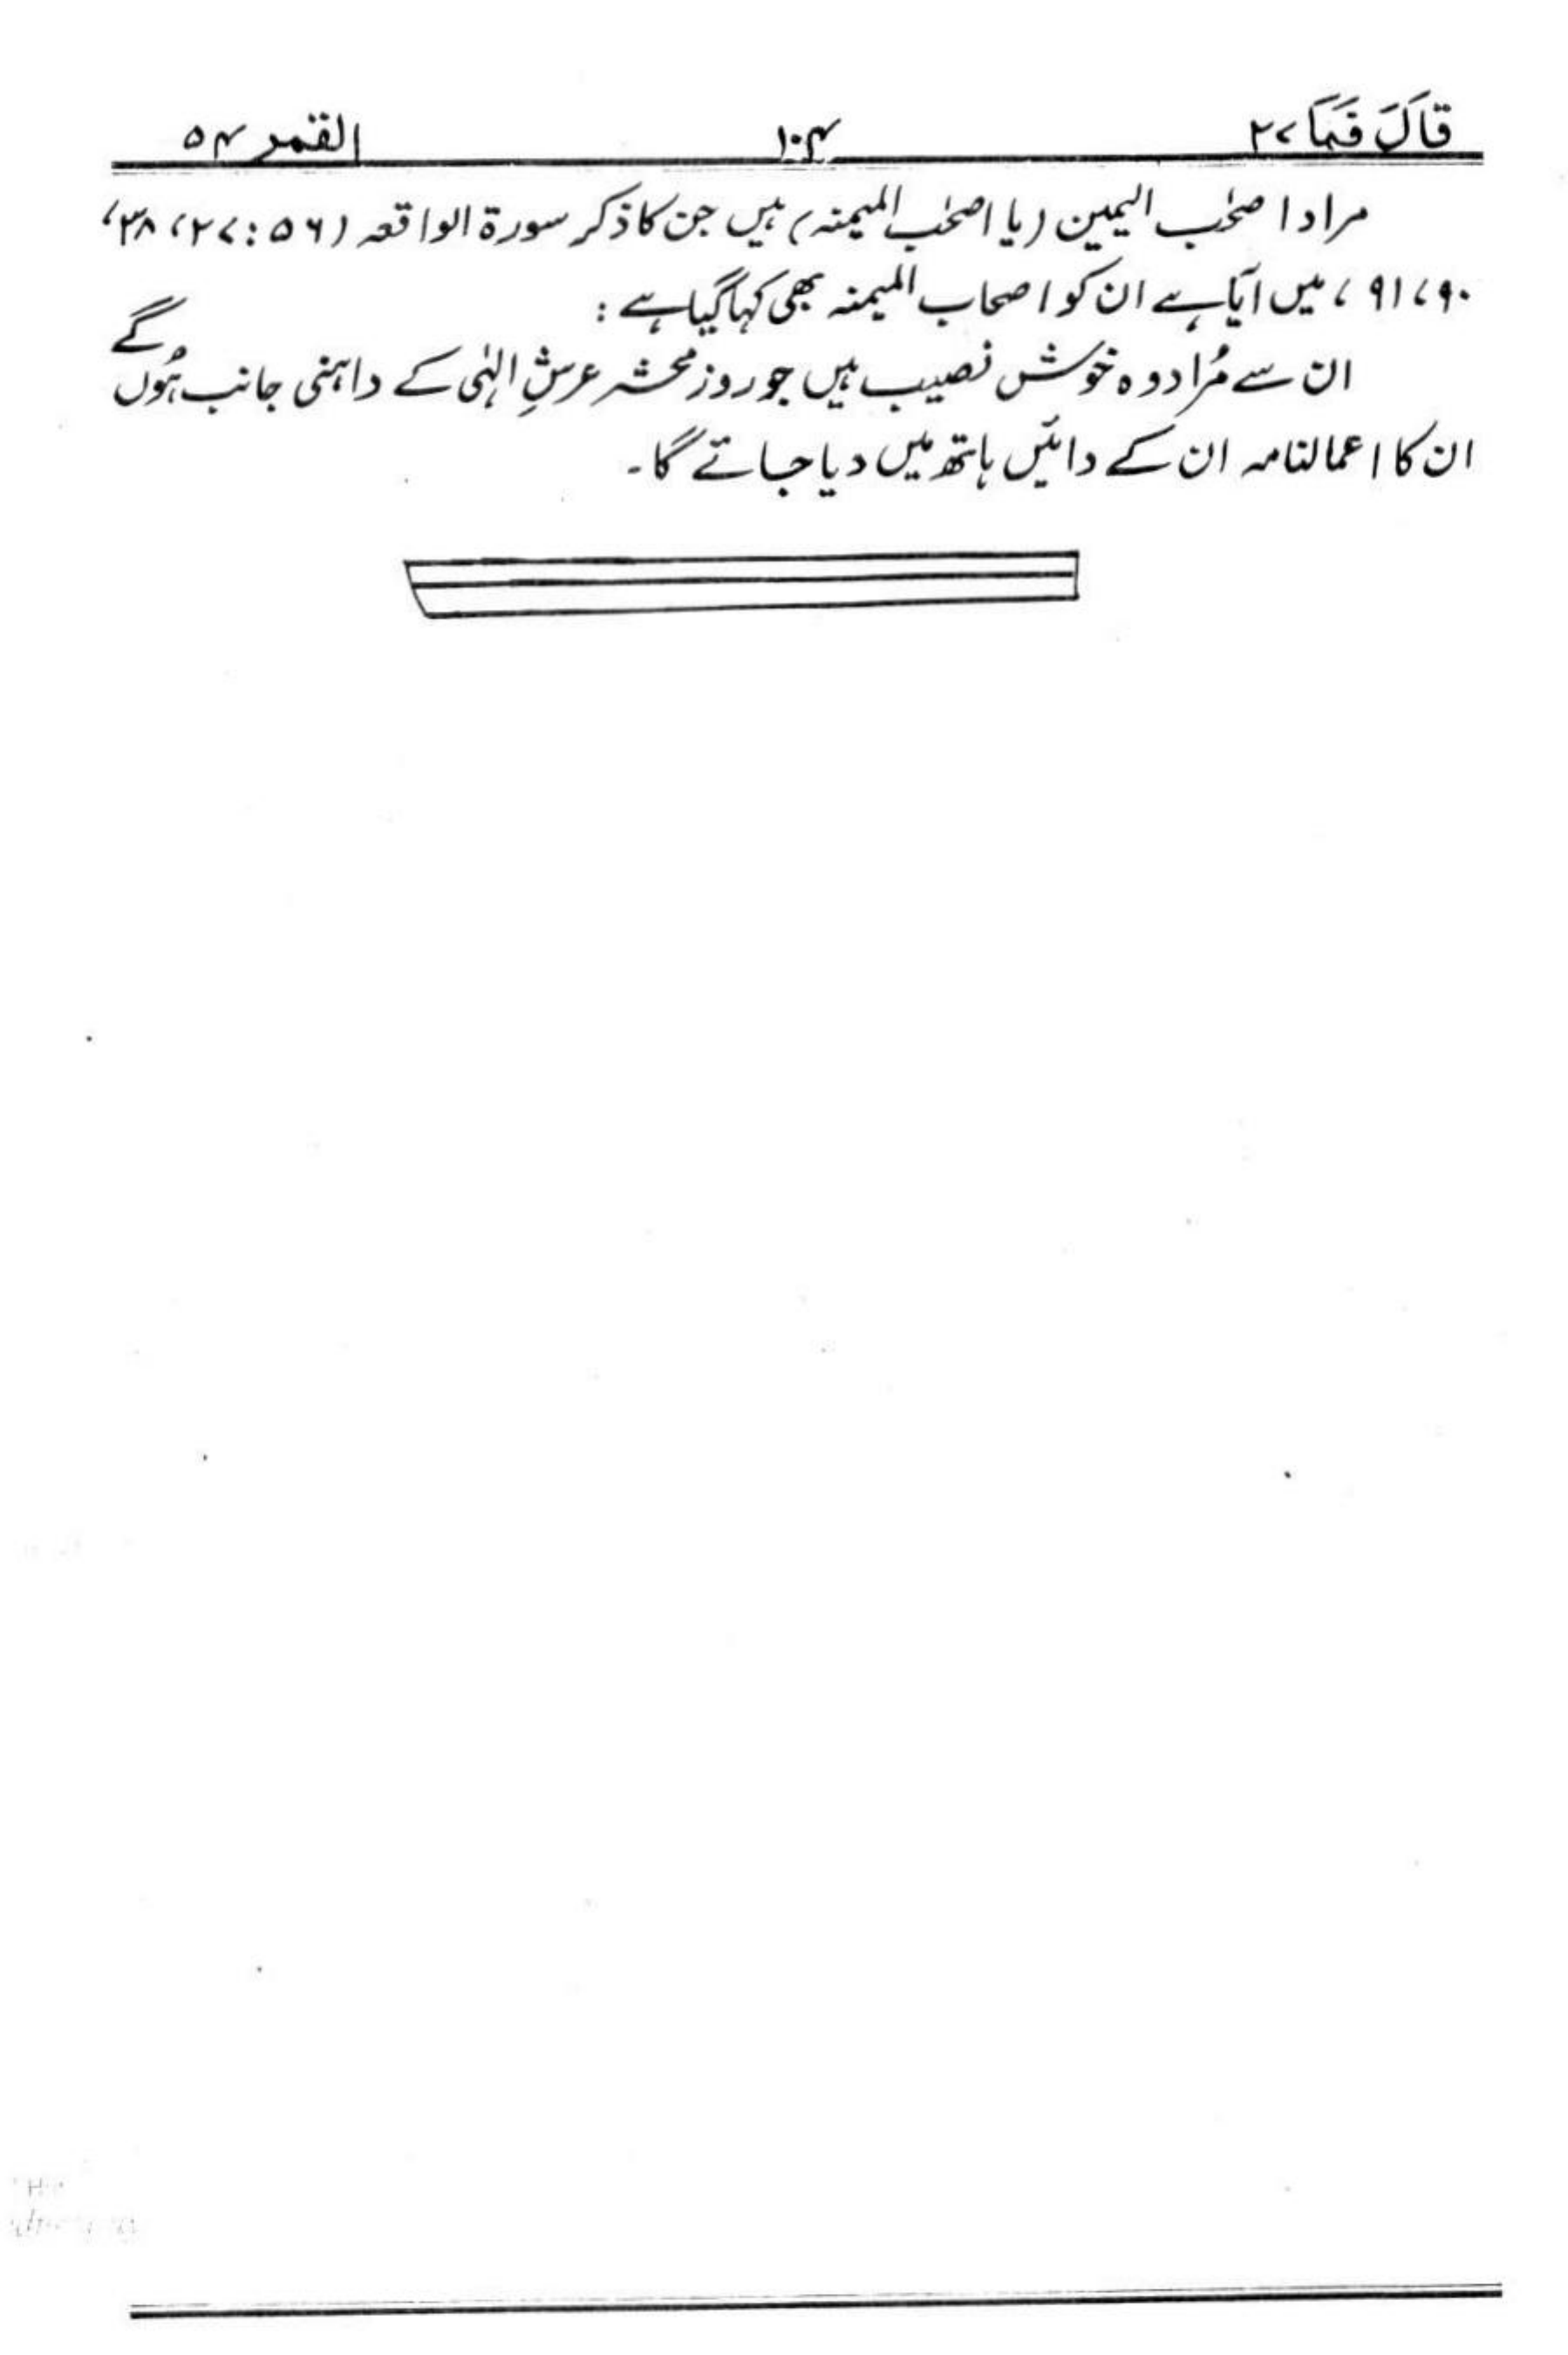 قَالَ فَمَا ٢٧ ١٠٤ القمر ٥٤
مراد اصحٰب الیمین (یا اصحٰب المیمنہ) ہیں جن کا ذکر سورۃ الواقعہ (٥٦:٢٧، ٣٨،
٩٠، ٩١، میں آیا ہے ان کو اصحاب المیمنہ بھی کہا گیا ہے :
ان سے مُراد وہ خوش نصیب ہیں جو روز محشر عرشِ الہٰی کے داہنی جانب ہُوں گے
ان کا اعمالنامہ ان کے دائیں ہاتھ میں دیا جائے گا۔